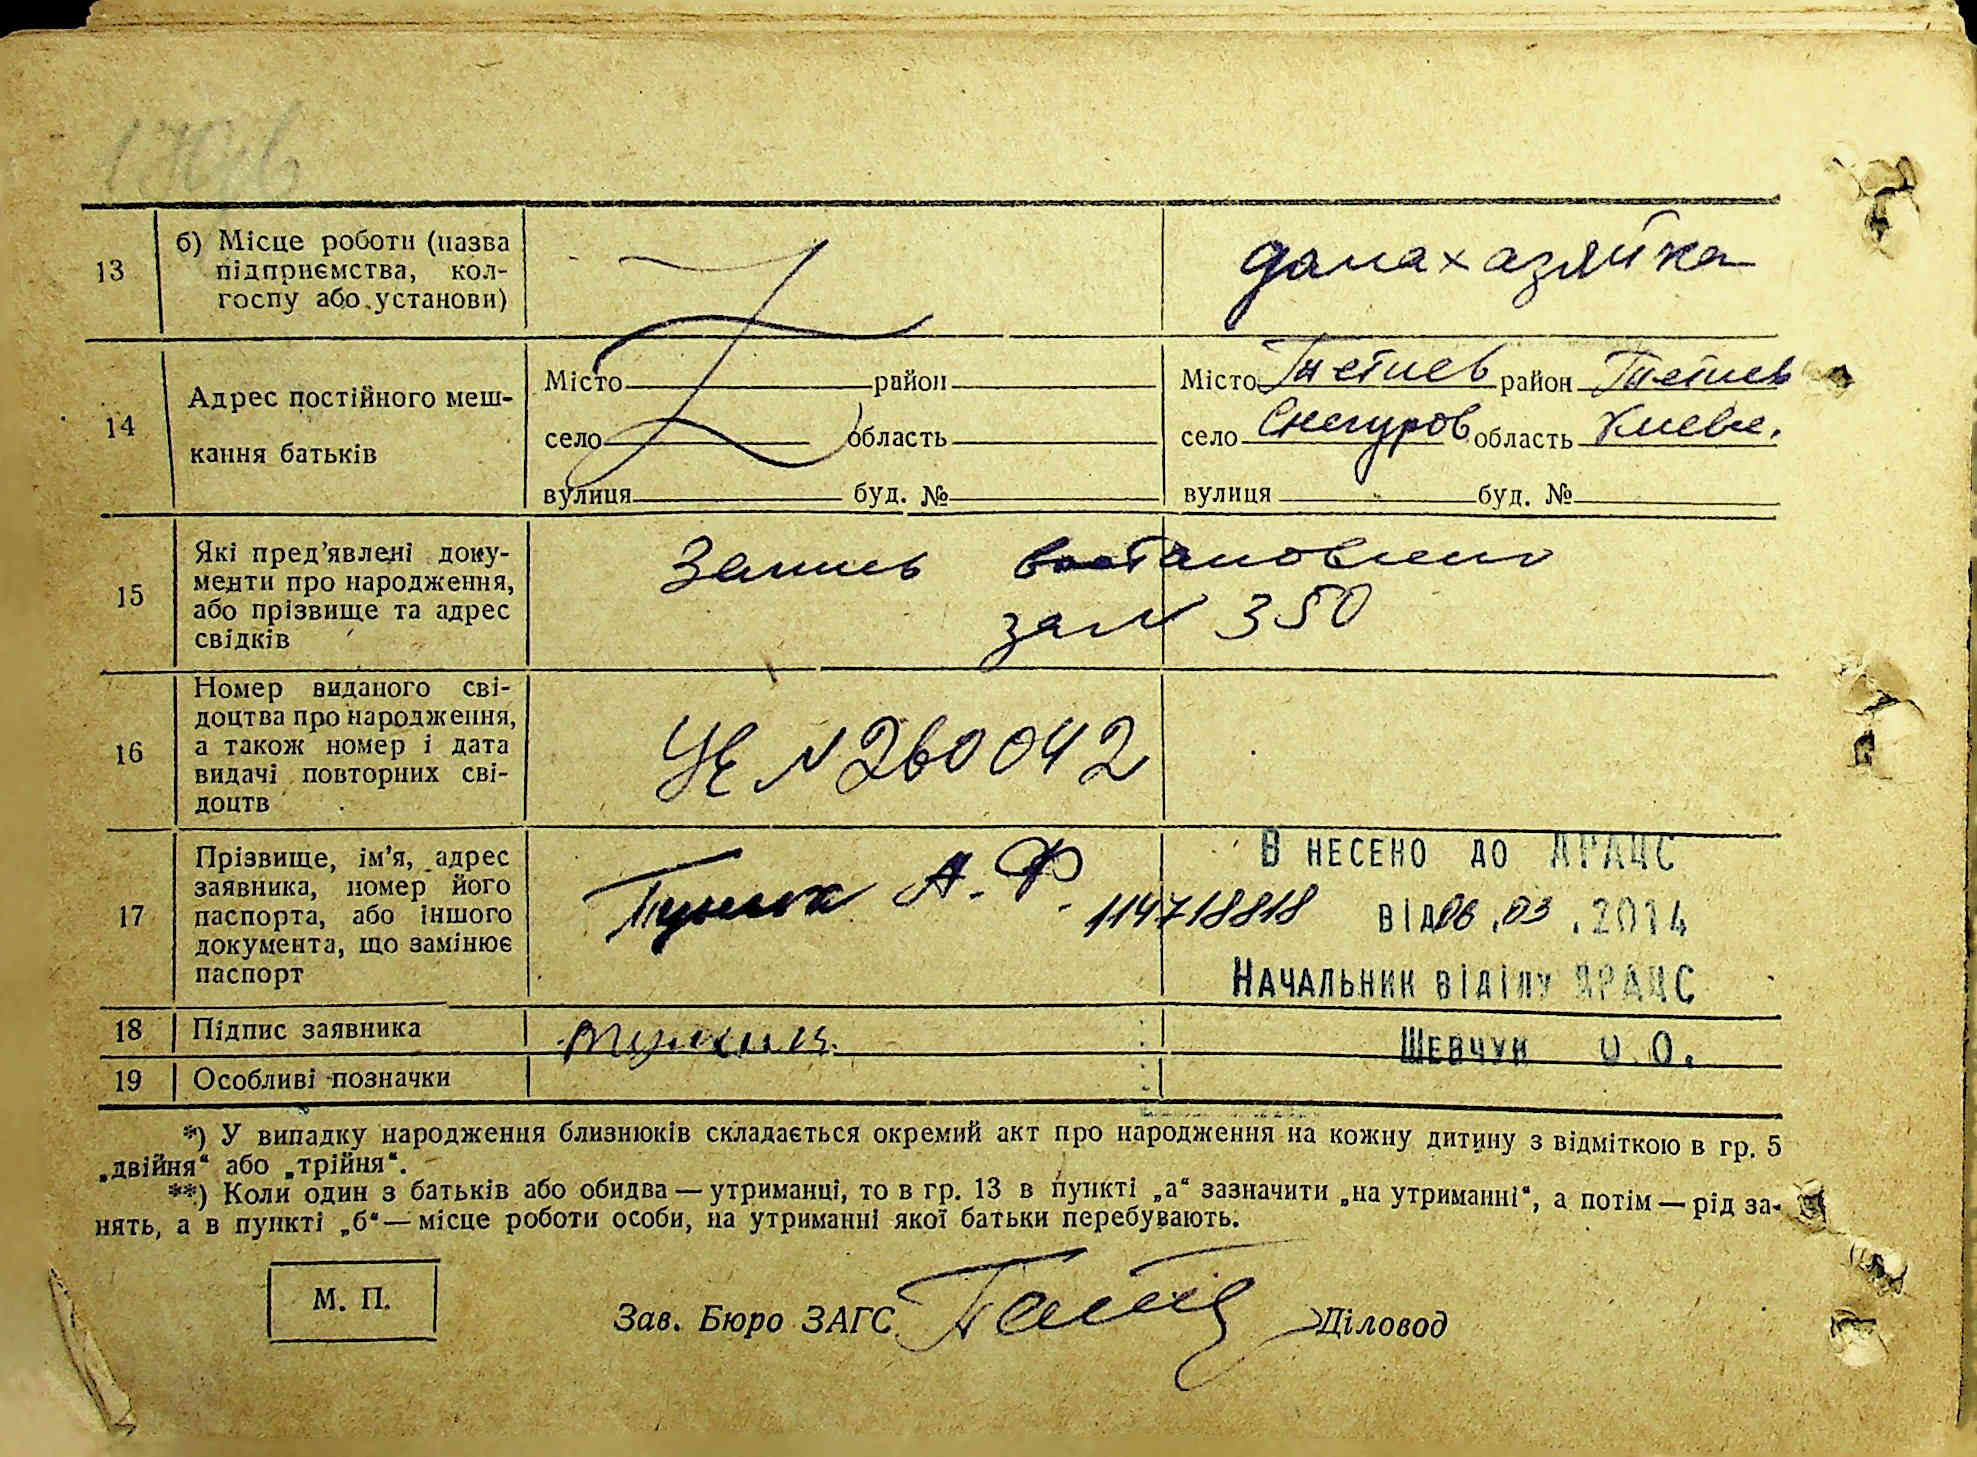 13
б) Місце роботи (назва
підприємства, кол-
госпу або установи)
дамахазяйка
14
Адрес постійного меш-
кання батьків
Місто район
село область
вулиця буд. №
Місто Тетиев район Тетиев
село Снегуров область Киевс.
вулиця буд. №
15
Які пред’явлені доку-
менти про народження,
або прізвище та адрес
свідків
Запись востановлено
за N 350
16
Номер виданого сві-
доцтва про народження,
а також номер і дата
видачі повторних сві-
доцтв
УЄ N 260042
17
Прізвище, ім’я, адрес
заявника, номер його
паспорта, або іншого
документа, що замінює
паспорт
А. Ф.
114718818
ВНЕСЕНО ДО ДРАЦС
ВІД 06.03.2014
НАЧАЛЬНИК ВІДІЛУ ДРАЦС
ШЕВЧУК О.О.
18
Підпис заявника
19
Особливі позначки
*) У випадку народження близнюків складається окремий акт про народження на кожну дитину з відміткою в гр. 5
„двійня“ або „трійня“.
**) Коли один з батьків або обидва — утриманці, то в гр. 13 в пункті „а“ зазначити „на утриманні“, а потім — рід за-
нять, а в пункті „б“ — місце роботи особи, на утриманні якої батьки перебувають.
М. П.
Зав. Бюро ЗАГС
Діловод